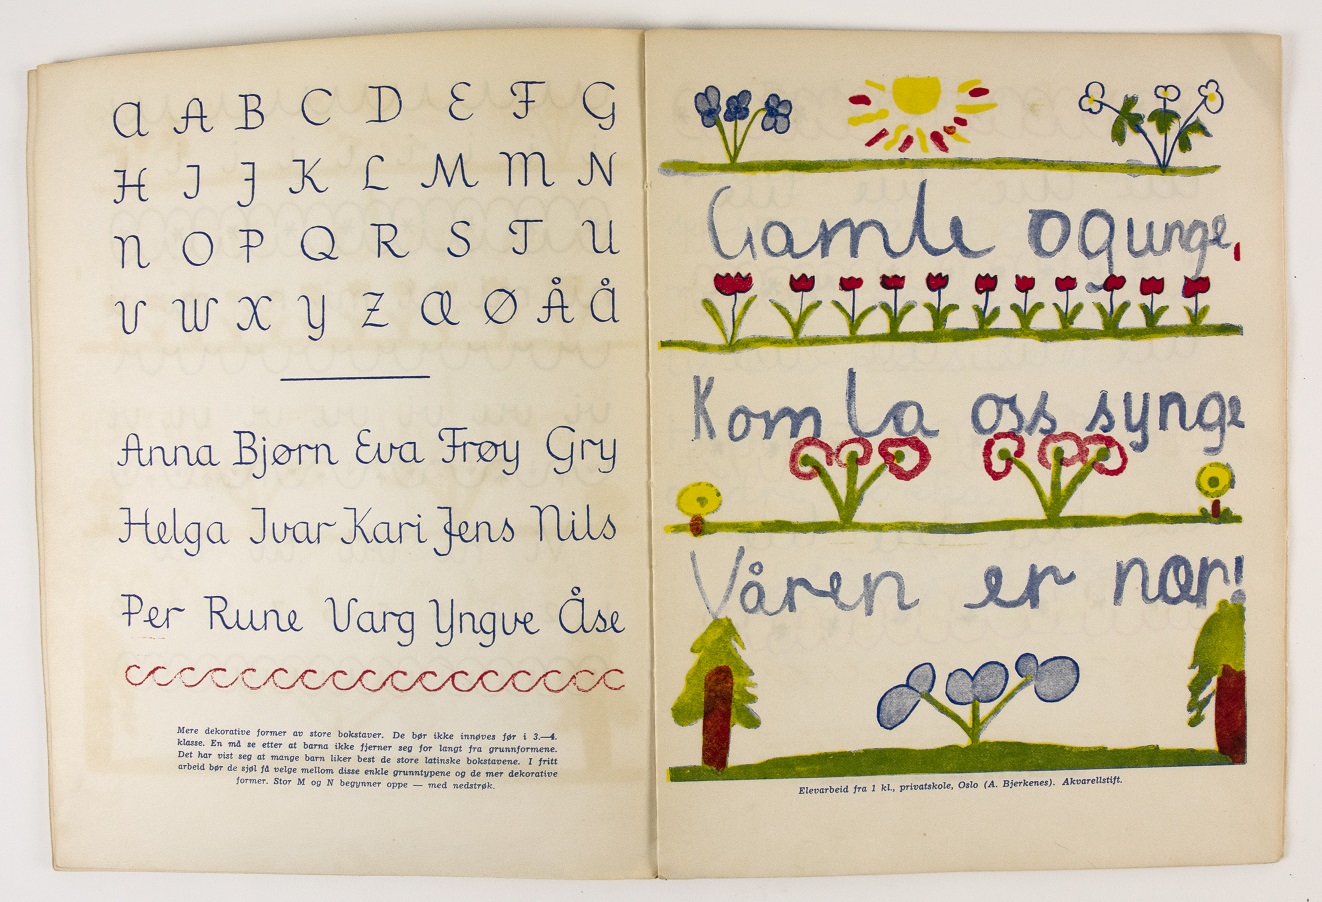 a A B C D E F G
H I J K L M M N
N O P Q R S T U
V W X Y Z Æ Ø Å Å
Anna Bjørn Eva Frøy Gry
Helga Ivar Kari Jens Nils
Per Rune Varg Yngve Åse
Mere dekorative former av store bokstaver. De bør ikke innøves før i 3.—4.
klasse. En må se etter at barna ikke fjerner seg for langt fra grunnformene.
Det har vist seg at mange barn liker best de store latinske bokstavene. I fritt
arbeid bør de sjøl få velge mellom disse enkle grunntypene og de mer dekorative
former. Stor M og N begynner oppe — med nedstrøk.
Gamle og unge,
Kom la oss synge
Våren er nær!
Elevarbeid fra 1 kl., privatskole, Oslo (A. Bjerkenes). Akvarellstift.